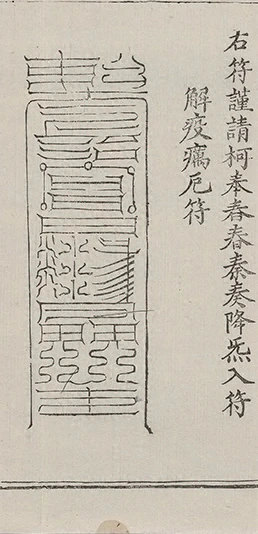 右符謹請柯奉春舂秦奏降炁入符
解疫癘厄符